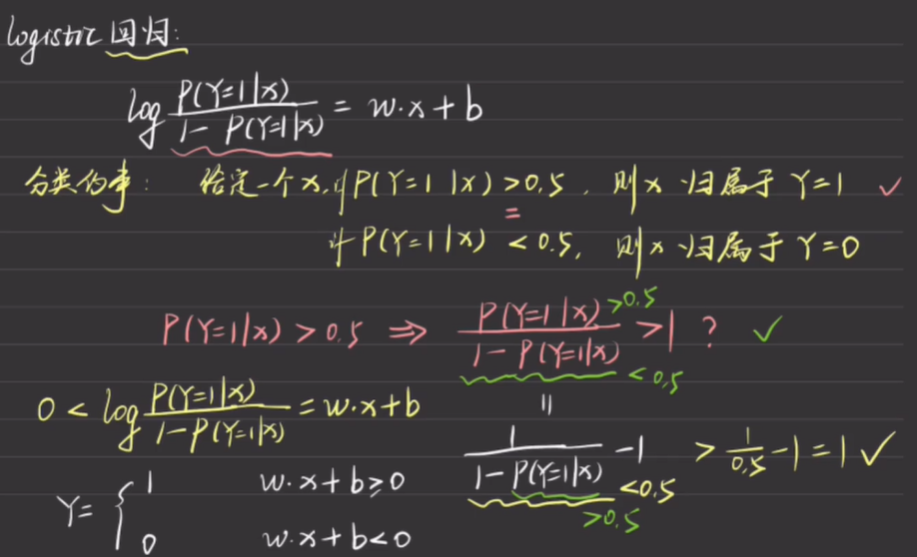 logistic 回归:
log P(Y=1|x) / 1 - P(Y=1|x) = w·x + b
分类约束: 给定一个x, if P(Y=1|x) > 0.5, 则x归属于Y=1 ✓
=
if P(Y=1|x) < 0.5, 则x归属于Y=0
P(Y=1|x) > 0.5 ⇒ P(Y=1|x) >0.5 / 1 - P(Y=1|x) <0.5 > 1 ? ✓
0 < log P(Y=1|x) / 1 - P(Y=1|x) = w·x + b
=
1 / 1 - P(Y=1|x) - 1 > 1/0.5 - 1 = 1 ✓
<0.5
>0.5
Y = { 1 w·x + b ≥ 0
0 w·x + b < 0